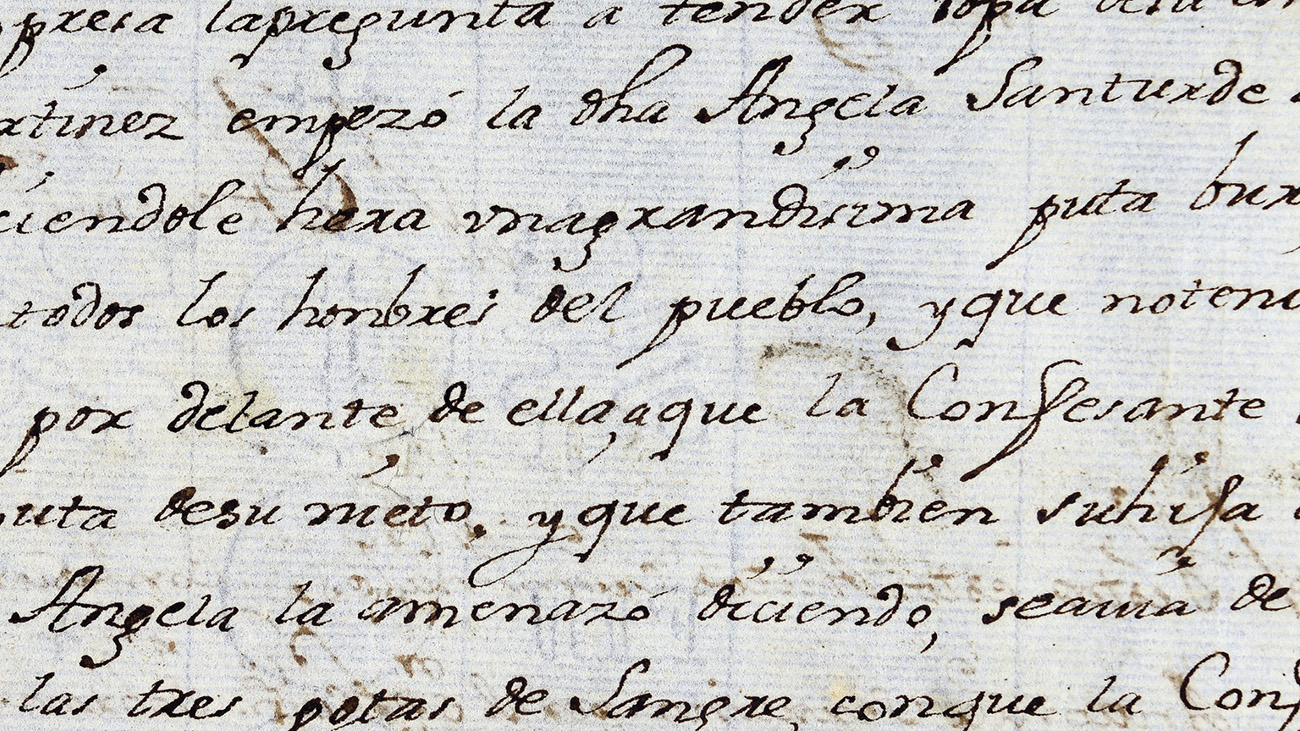 presa lapregunta a tender ropa
rtinez empezó la dha Angela Santurde
ciendole hera vnagrandisima puta bur
todos los honbres del pueblo, yque noteni
por delante de ella, aque la Confesante
uta desu nieto, yque tambien suhija
Angela la amenazó diciendo, seauia de
las tres potas de Sangre, conque la Conf